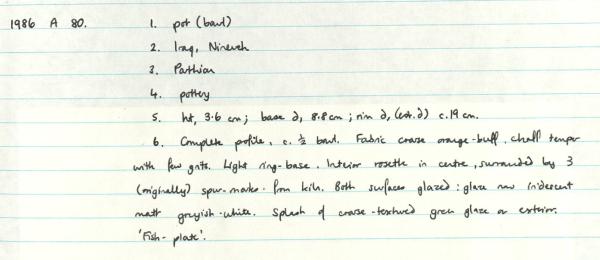 1986 A 80. 1. pot (bowl)
2. Iraq, Nineveh
3. Parthian
4. pottery
5. ht, 3.6 cm; base d, 8.8 cm; rim d, (est. d) c. 19 cm.
6. Complete profile, c. ½ bowl. Fabric coarse orange-buff, chaff temper
with few grits. Light ring-base. Interior rosette in centre, surrounded by 3
(originally) spur-marks from kiln. Both surfaces glazed: glaze now iridescent
matt greyish-white. Splash of coarse-textured green glaze on exterior.
'Fish-plate'.